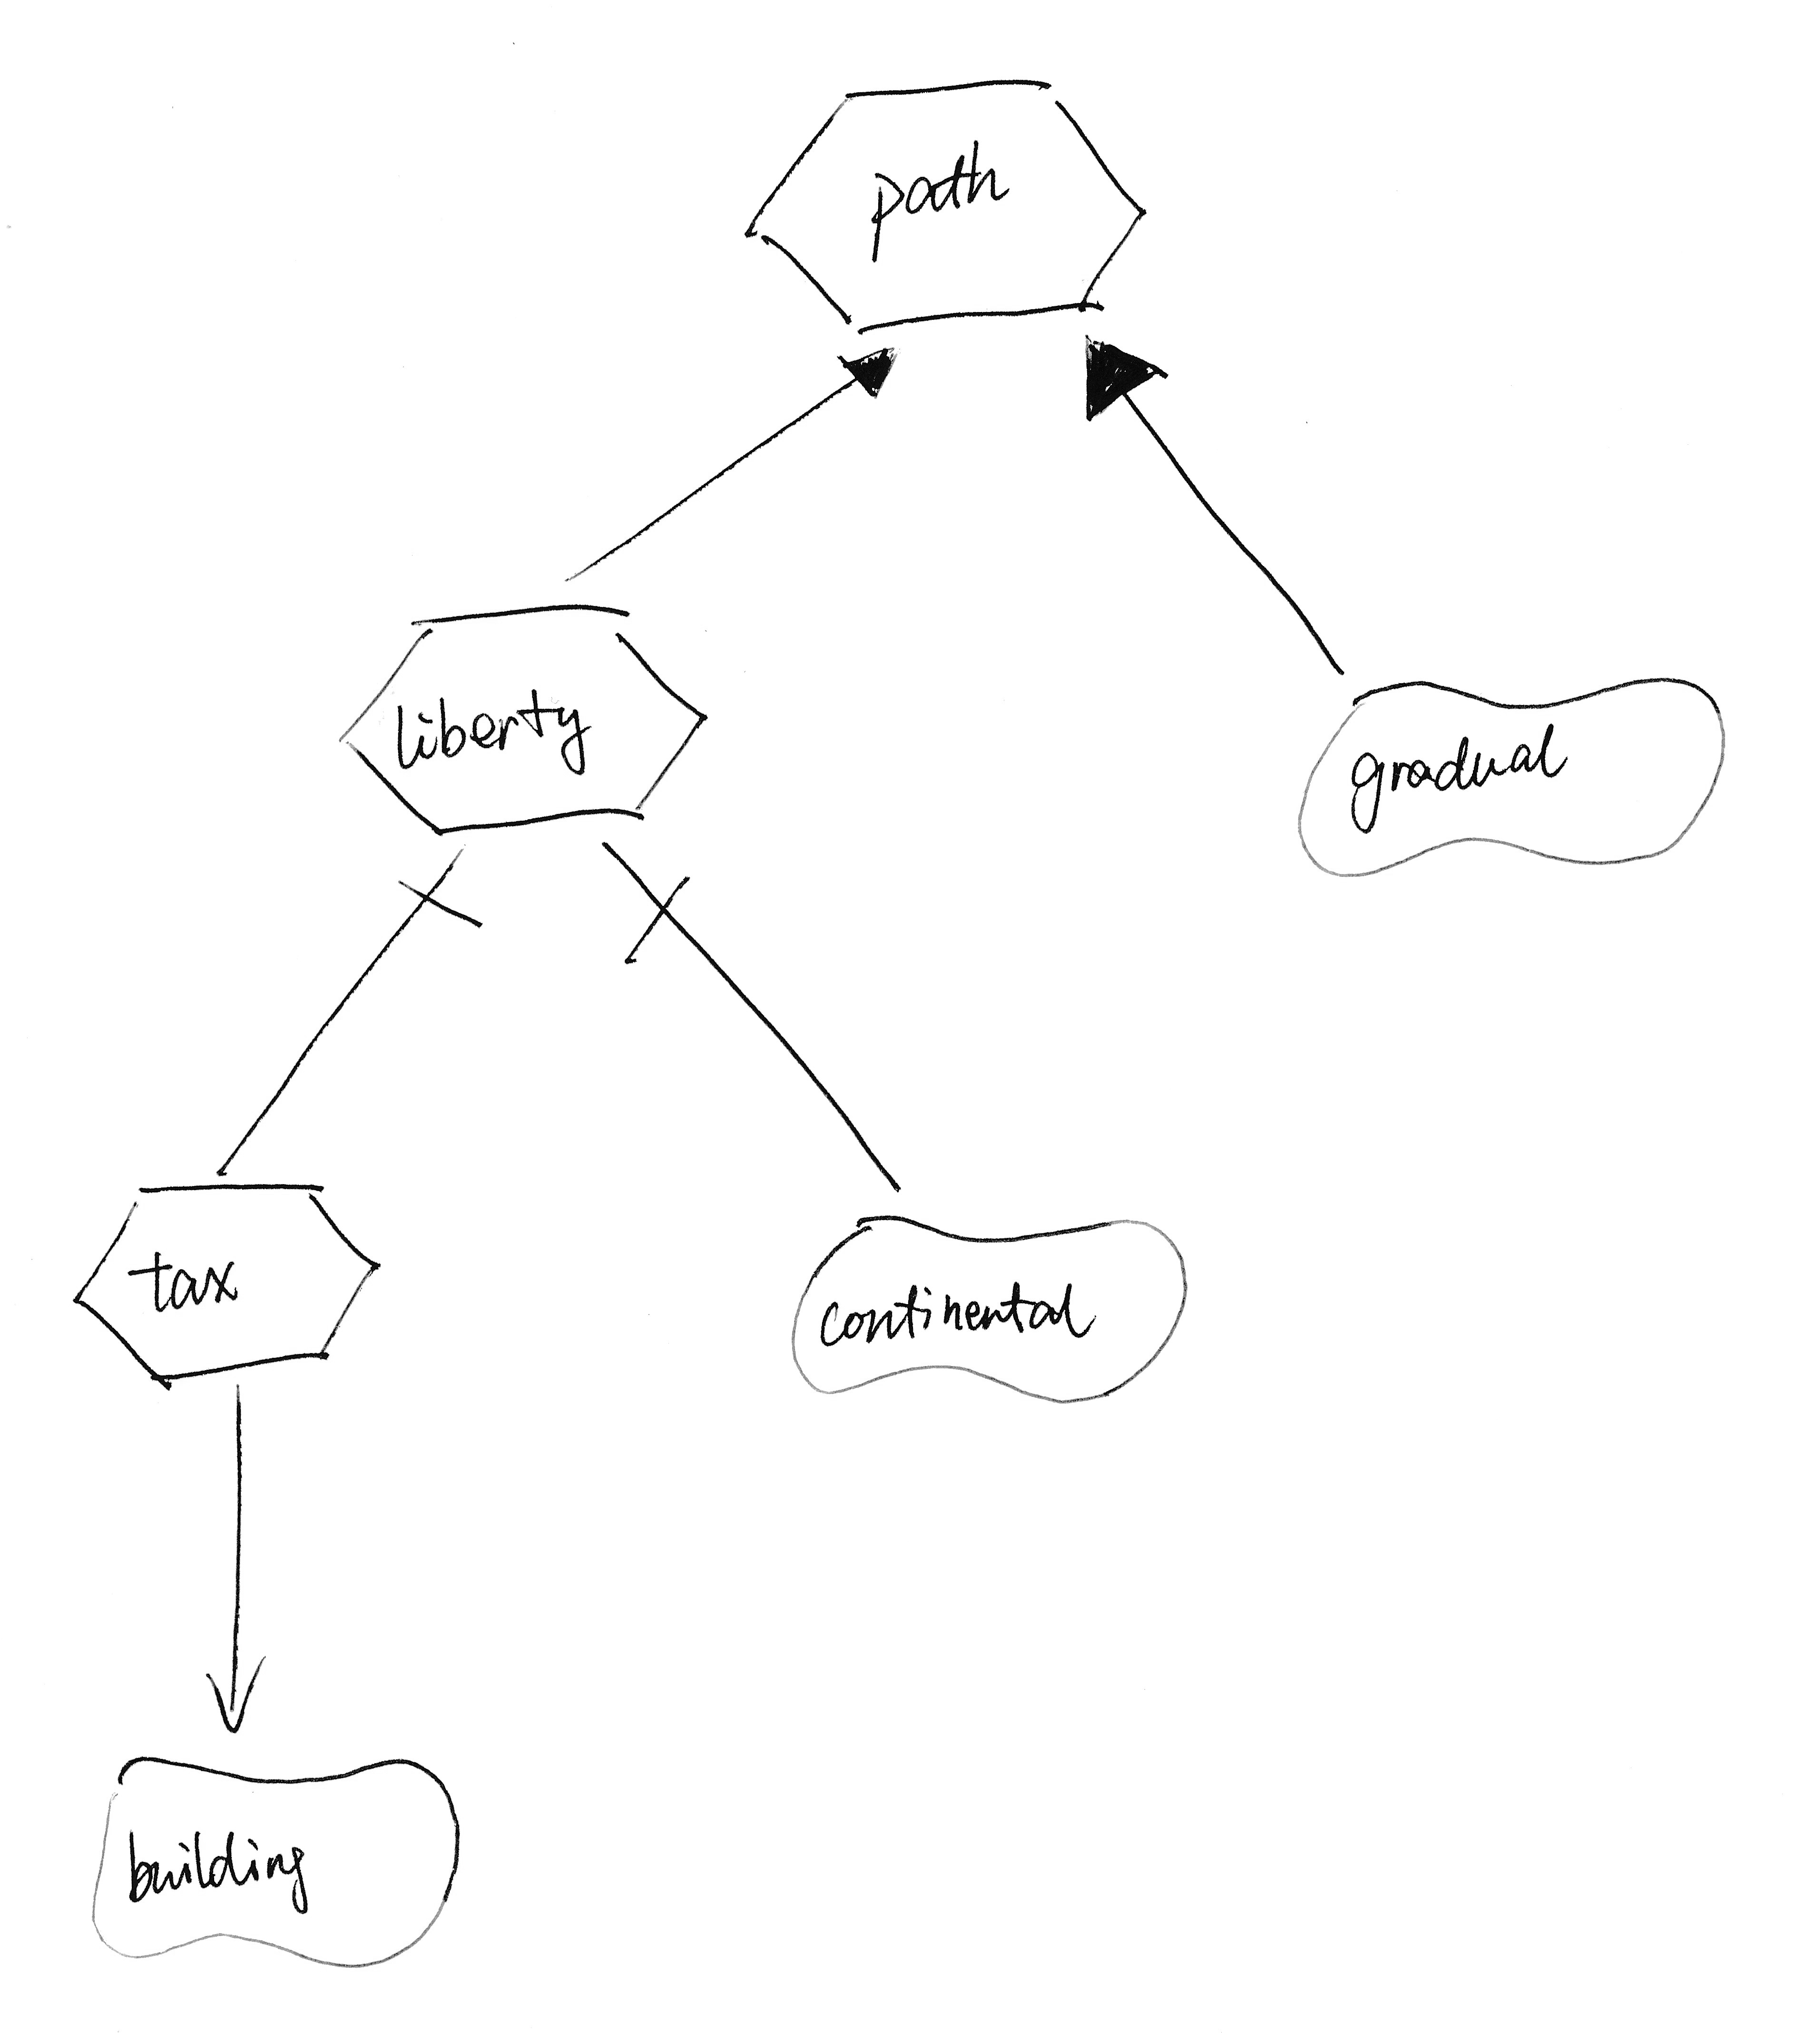 path
liberty
gradual
tax
continental
building